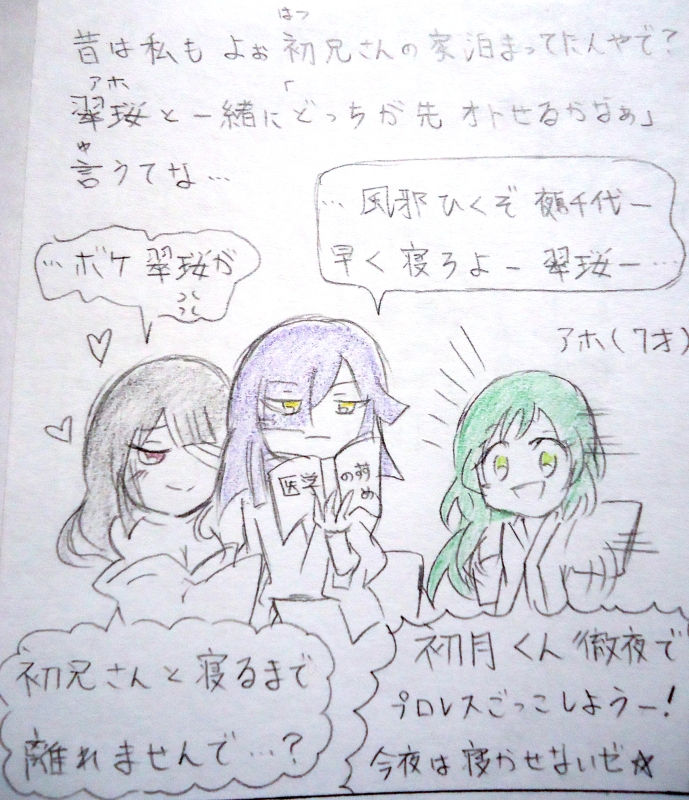 はつ
昔は私も よぉ 初兄さんの家泊まってたんやで?
アホ
翠珱と一緒に「どっちが先 オトせるかなぁ」
ゆ
言うてな…
…風邪ひくぞ 千代ー
早く寝ろよー 翠珱ー…
…ボケ 翠珱が
アホ(7才)
医学
のすすめ
初兄さんと寝るまで
離れませんで…?
初月くん徹夜で
プロレスごっこしようー!
今夜は寝かせないゼ☆